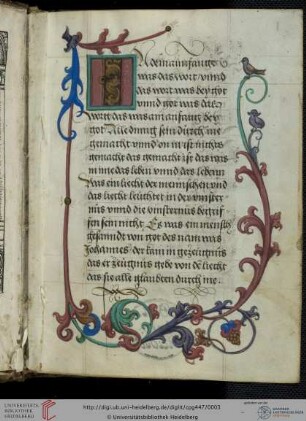 In dem anfange
was das wort vnnd
das wort was bey got
vnnd got was das
wort das was am anfang bey
got Alle ding sein durch ine
gemacht vnnd on in ist nichts
gemacht das gemacht ist das was
in ime das leben vnnd das leben
was ein liecht der menschen vnd
das liecht leüchtet in der vinster
nis vnnd die vinsternus begrif
fen sein nicht Es was ein mensch
gesanndt von got des nam was
Johannes der kam in gezeügnus
das er zeügnus gebe von de liecht
das sie alle glaubten durch ine
UNIVERSITÄTS-
BIBLIOTHEK
HEIDELBERG
http://digi.ub.uni-heidelberg.de/diglit/cpg447/0003
© Universitätsbibliothek Heidelberg